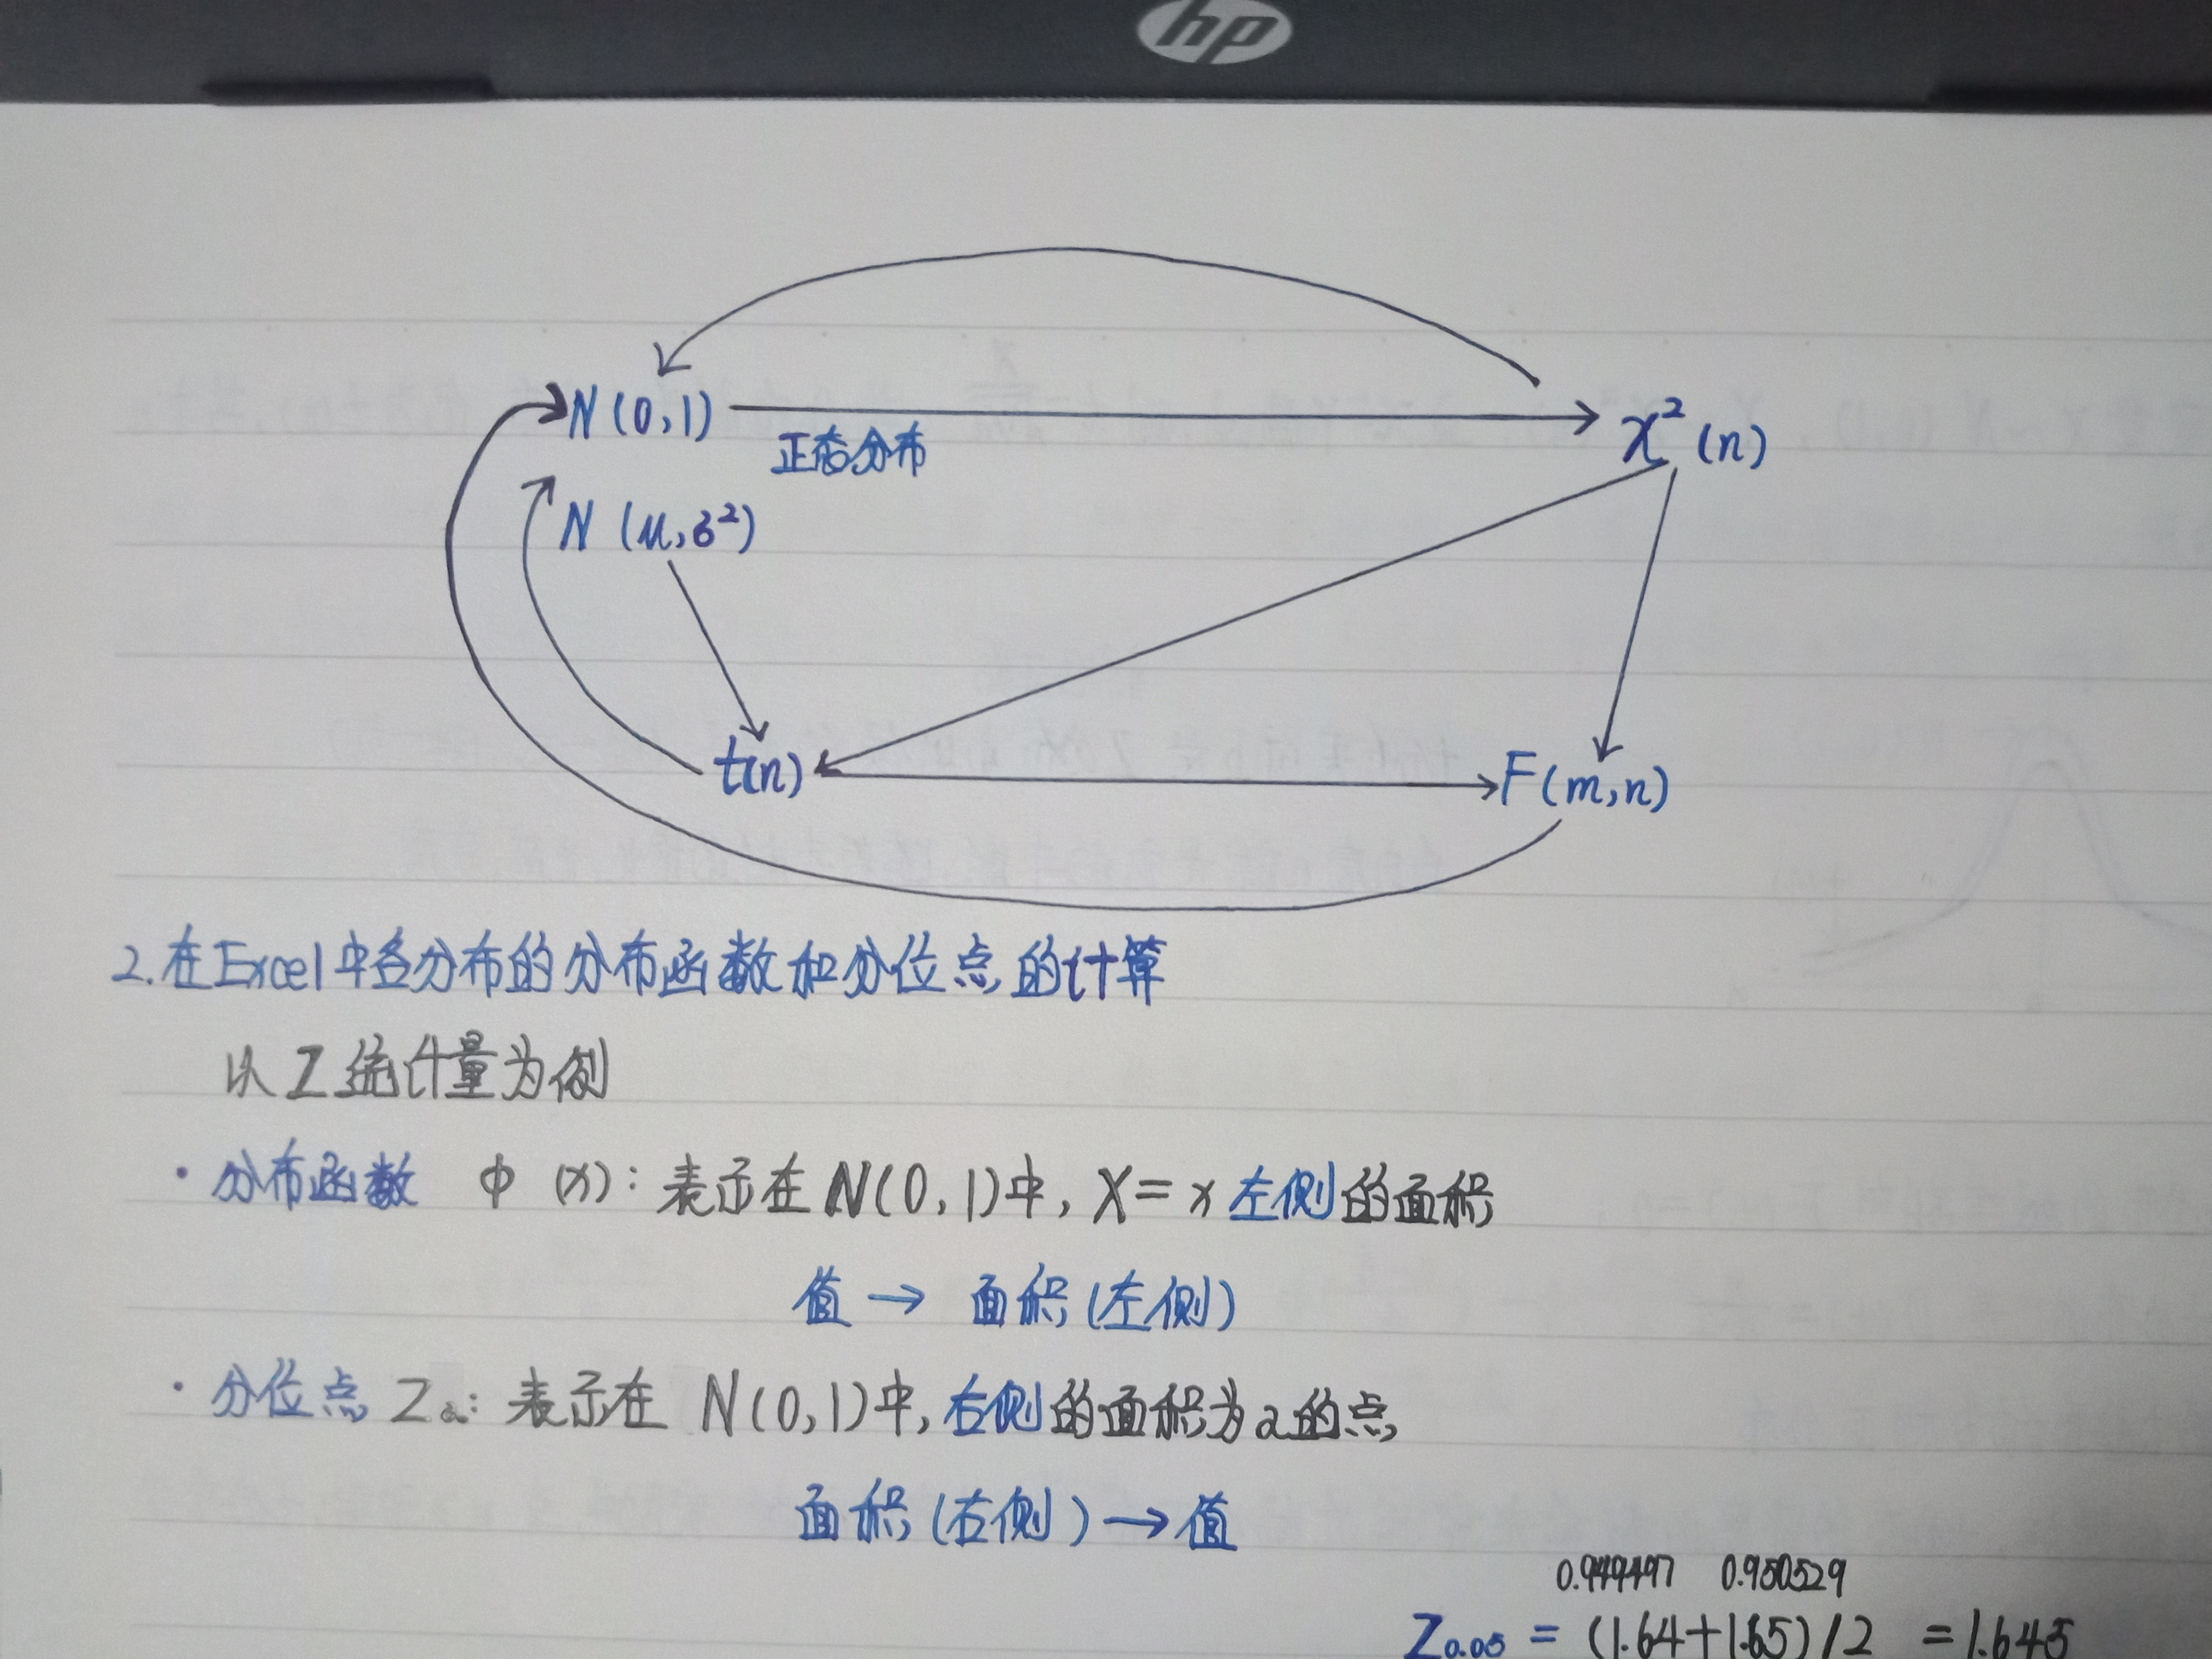 hp
N(0,1)
正态分布
χ²(n)
N(μ,σ²)
t(n)
F(m,n)
2.在Excel中各分布的分布函数和分位点的计算
以Z统计量为例
·分布函数 Φ(x):表示在N(0,1)中,X=x左侧的面积
值→面积(左侧)
·分位点Zα:表示在N(0,1)中,右侧的面积为α的点
面积(右侧)→值
0.949497 0.950529
Z0.05=(1.64+1.65)/2=1.645